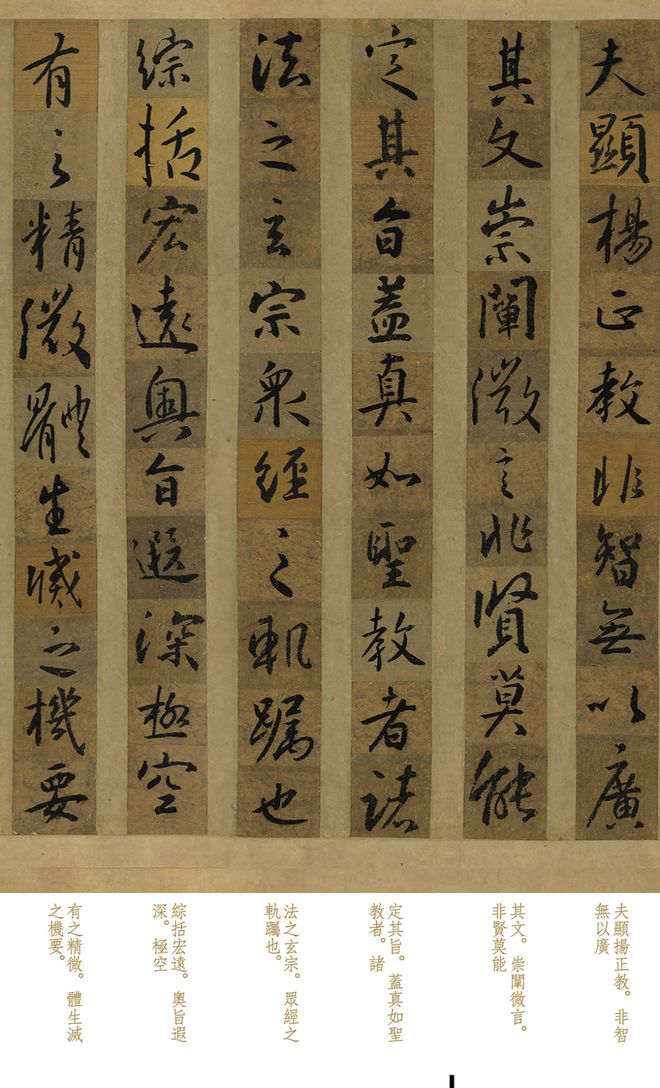 夫顯揚正教非智無以廣
其文崇闡微言非賢莫能
定其旨蓋真如聖教者諸
法之玄宗眾經之軌躅也
綜括宏遠奧旨遐深極空
有之精微體生滅之機要
夫顯揚正教。非智
無以廣
其文。崇闡微言。
非賢莫能
定其旨。蓋真如聖
教者。諸
法之玄宗。眾經之
軌躅也。
綜括宏遠。奧旨遐
深。極空
有之精微。體生滅
之機要。